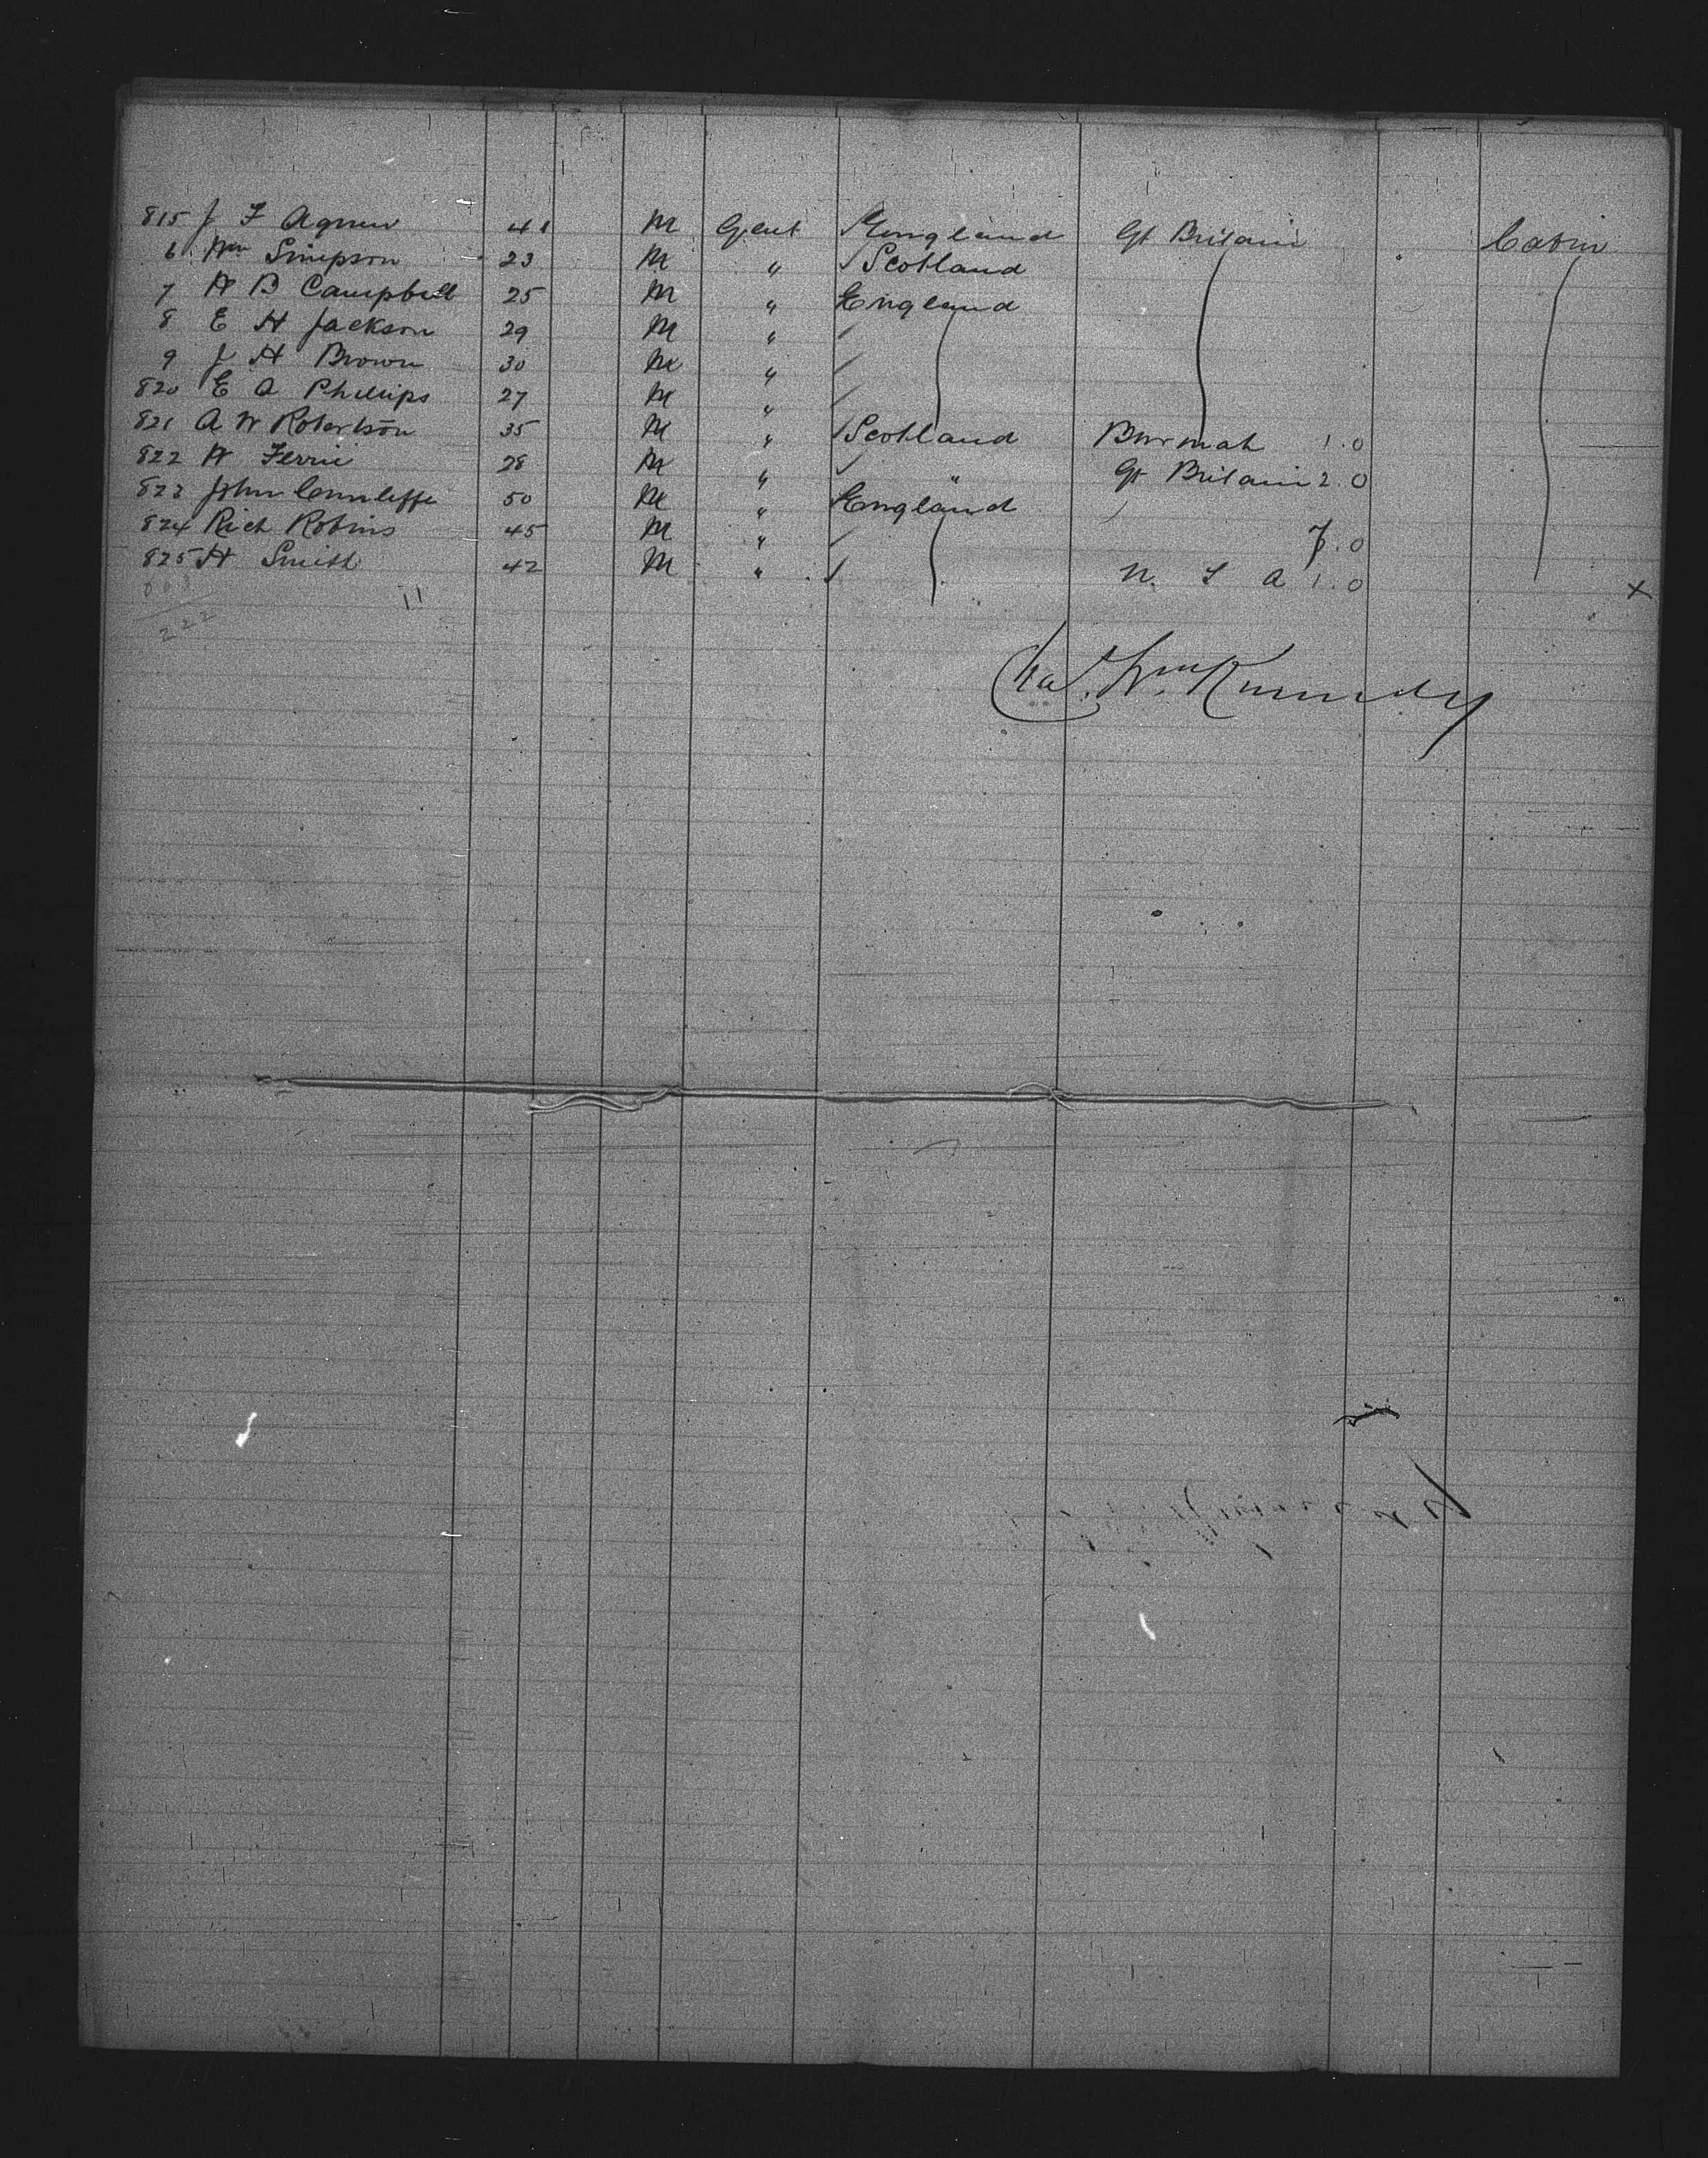 815 J F Agnew 41 M Gent England Gt Britain Cabin
6 Wm Simpson 23 M " Scotland
7 H B Campbell 25 M " England
8 E H Jackson 29 M "
9 J H Brown 30 M "
820 E A Phillips 27 M "
821 A W Robertson 35 M " Scotland Burmah 1.0
822 H Ferrie 28 M " " Gt Britain 2.0
823 John Cunliffe 50 M " England
824 Rich Robins 45 M " 7.0
825 H Smith 42 M " 1.0 X
11
222
Chas. Wm Kennedy